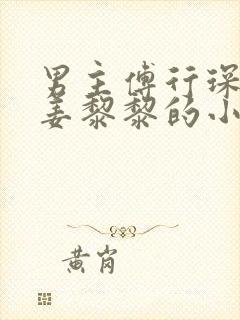 男主傅行琛
姜黎黎的小
黄岗